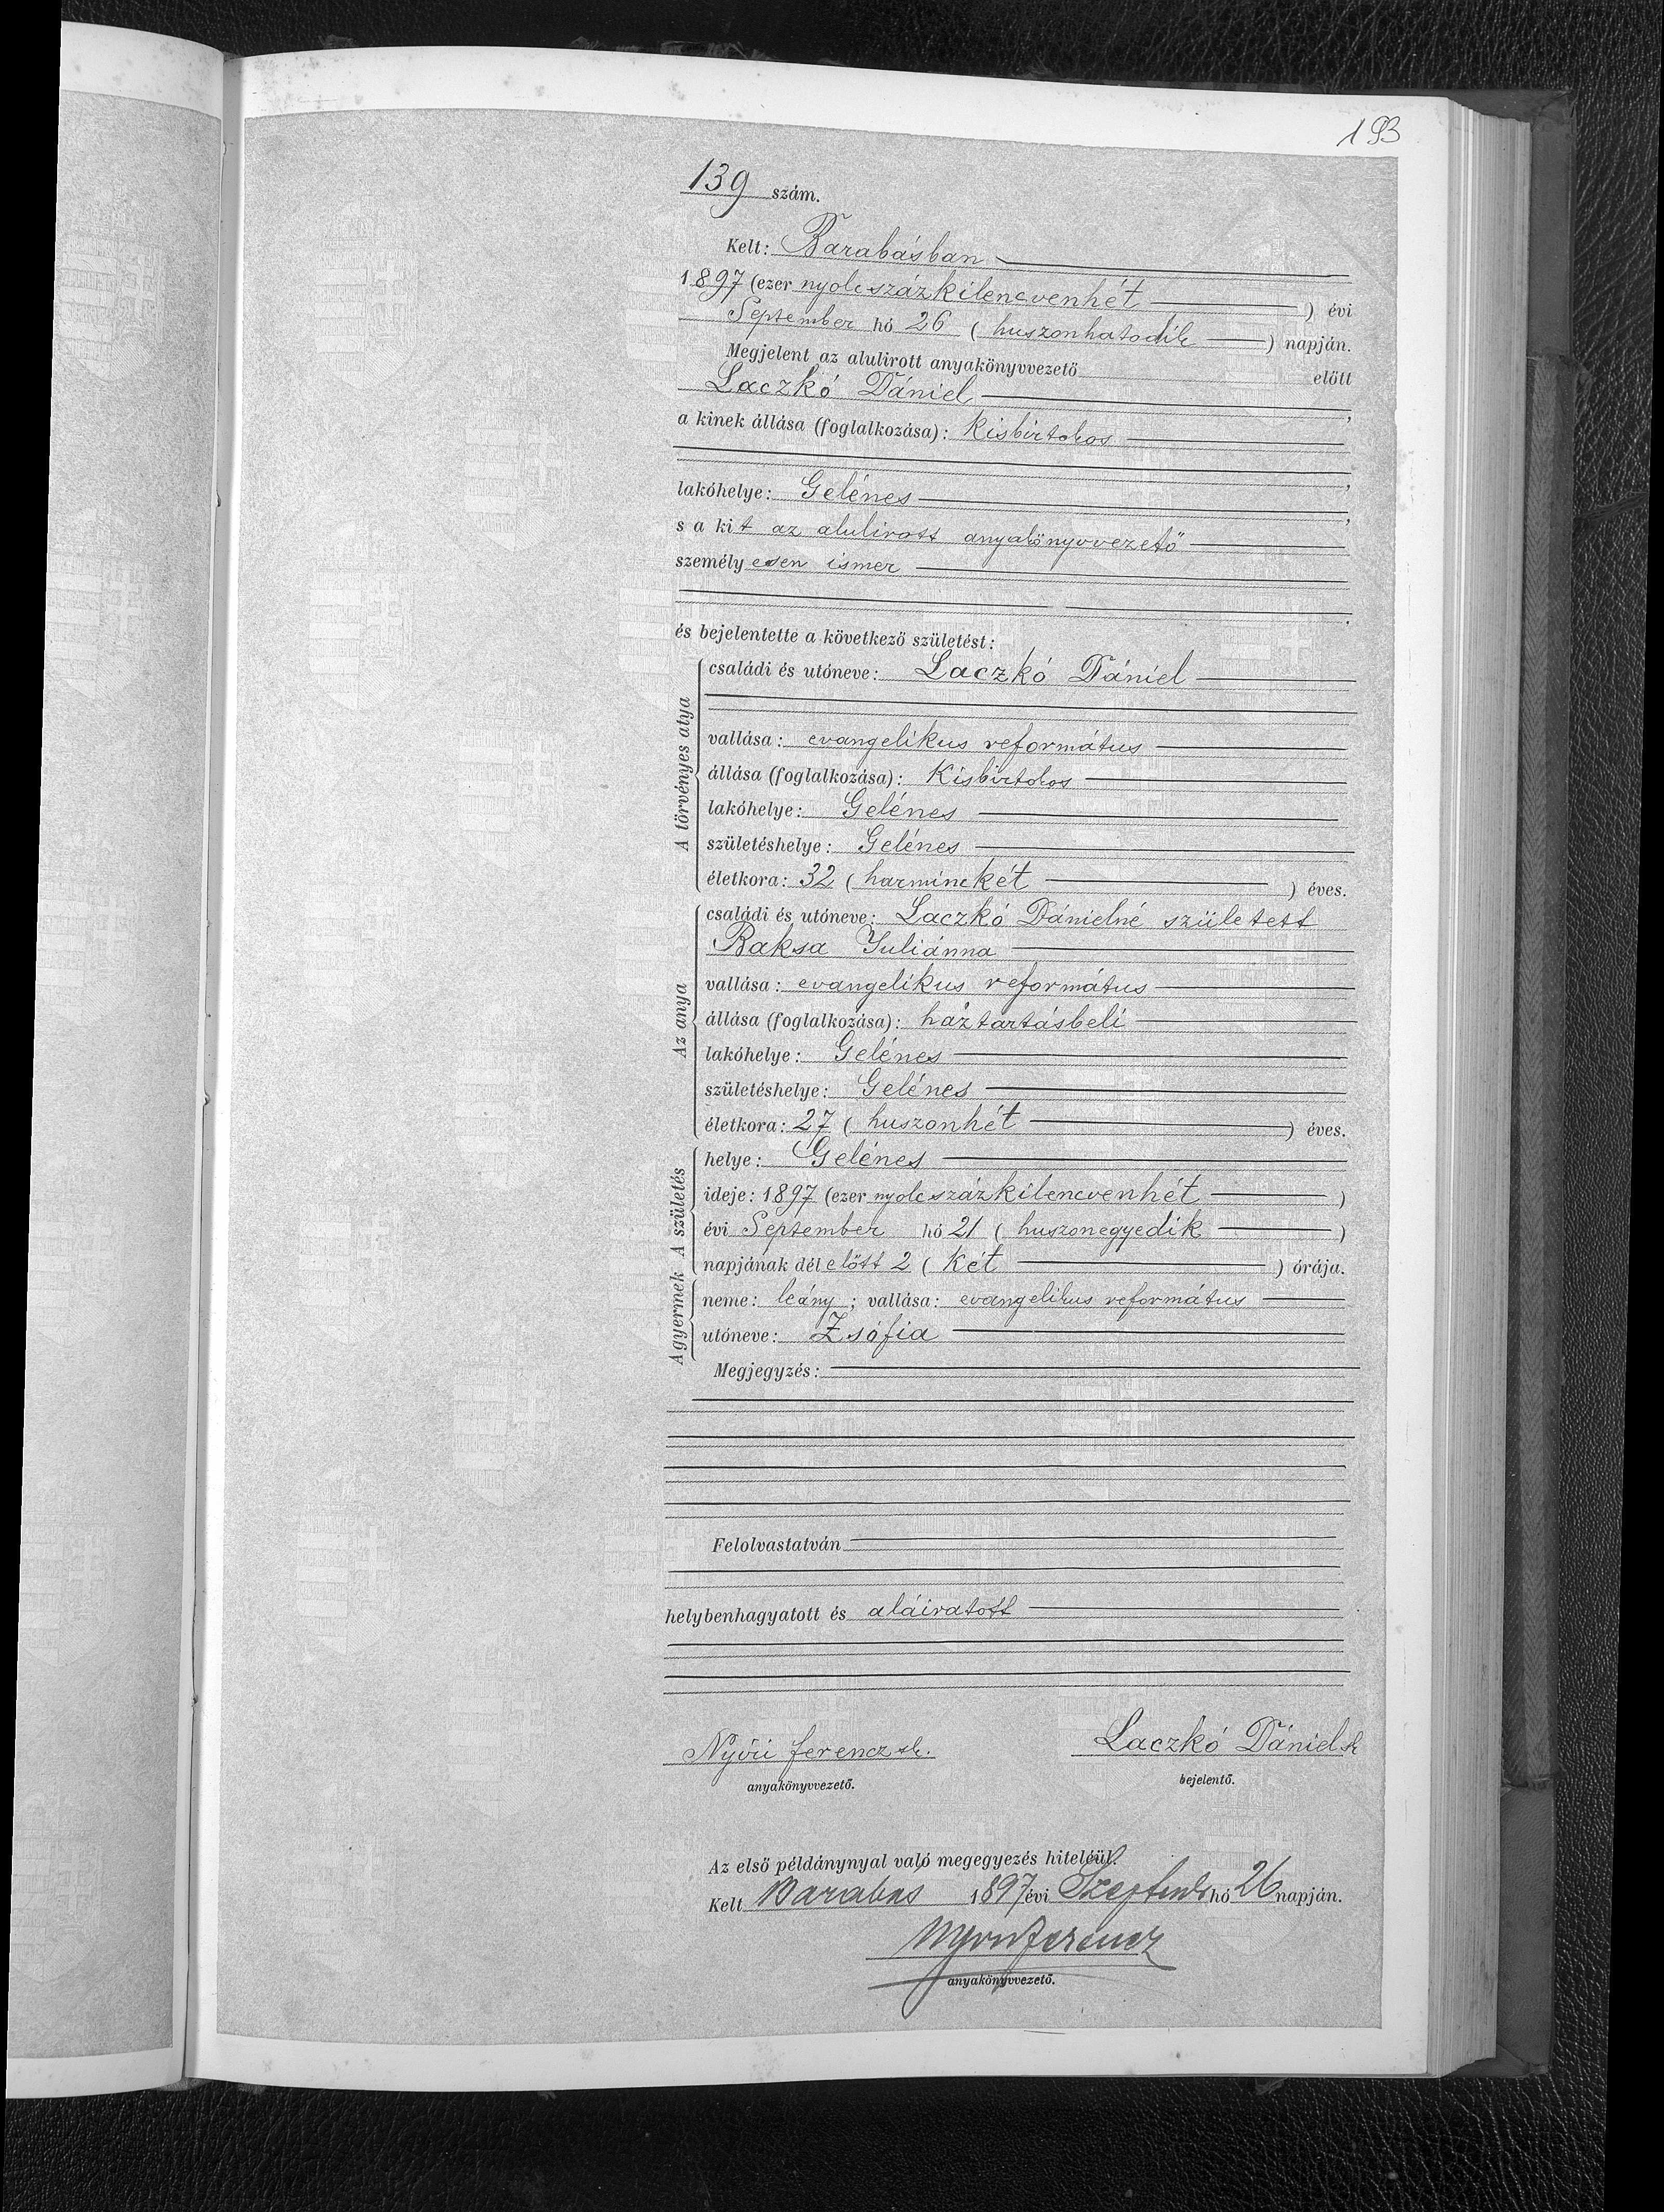 193
139 szám.
Kelt: Barabásban
1897 (ezer nyolcszázkilencvenhét) évi
September hó 26 (huszonhatodik) napján.
Megjelent az alulirott anyakönyvvezető előtt
Laczkó Dániel,
a kinek állása (foglalkozása): Kisbirtokos
,
lakóhelye: Gelénes,
s a kit az alulirott anyakönyvvezető
személyesen ismer
.
és bejelentette a következő születést:
A törvényes atya
családi és utóneve: Laczkó Dániel
vallása: evangelikus református
állása (foglalkozása): Kisbirtokos
lakóhelye: Gelénes
születéshelye: Gelénes
életkora: 32 (harminckét) éves.
Az anya
családi és utóneve: Laczkó Dánielné született
Baksa Juliánna
vallása: evangelikus református
állása (foglalkozása): háztartásbeli
lakóhelye: Gelénes
születéshelye: Gelénes
életkora: 27 (huszonhét) éves.
A születés
helye: Gelénes
ideje: 1897 (ezer nyolcszázkilencvenhét)
évi September hó 21 (huszonegyedik)
napjának dél előtt 2 (Két) órája.
A gyermek
neme: leány; vallása: evangelikus református
utóneve: Zsófia
Megjegyzés:
Felolvastatván
helybenhagyatott és aláiratott
Nyíri Ferencz sk. Laczkó Dániel sk
anyakönyvvezető. bejelentő.
Az első példánynyal való megegyezés hiteléül.
Kelt Barabás 1897 évi hó 26 napján.
Ferencz
anyakönyvvezető.